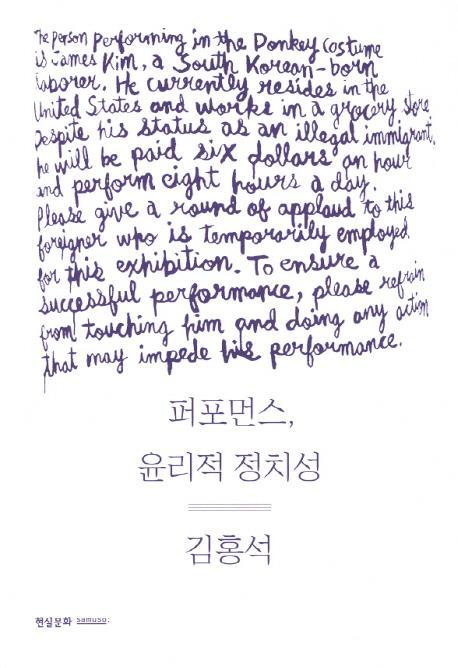 The person performing in the Donkey costume
is James Kim, a South Korean-born
laborer. He currently resides in the
United States and works in a grocery store
Despite his status as an illegal immigrant,
he will be paid six dollars an hour
and perform eight hours a day.
Please give a round of applaud to this
foreigner who is temporarily employed
for this exhibition. To ensure a
successful performance, please refrain
from touching him and doing any action
that may impede his performance.
퍼포먼스,
윤리적 정치성
김홍석
현실문화 samuso: